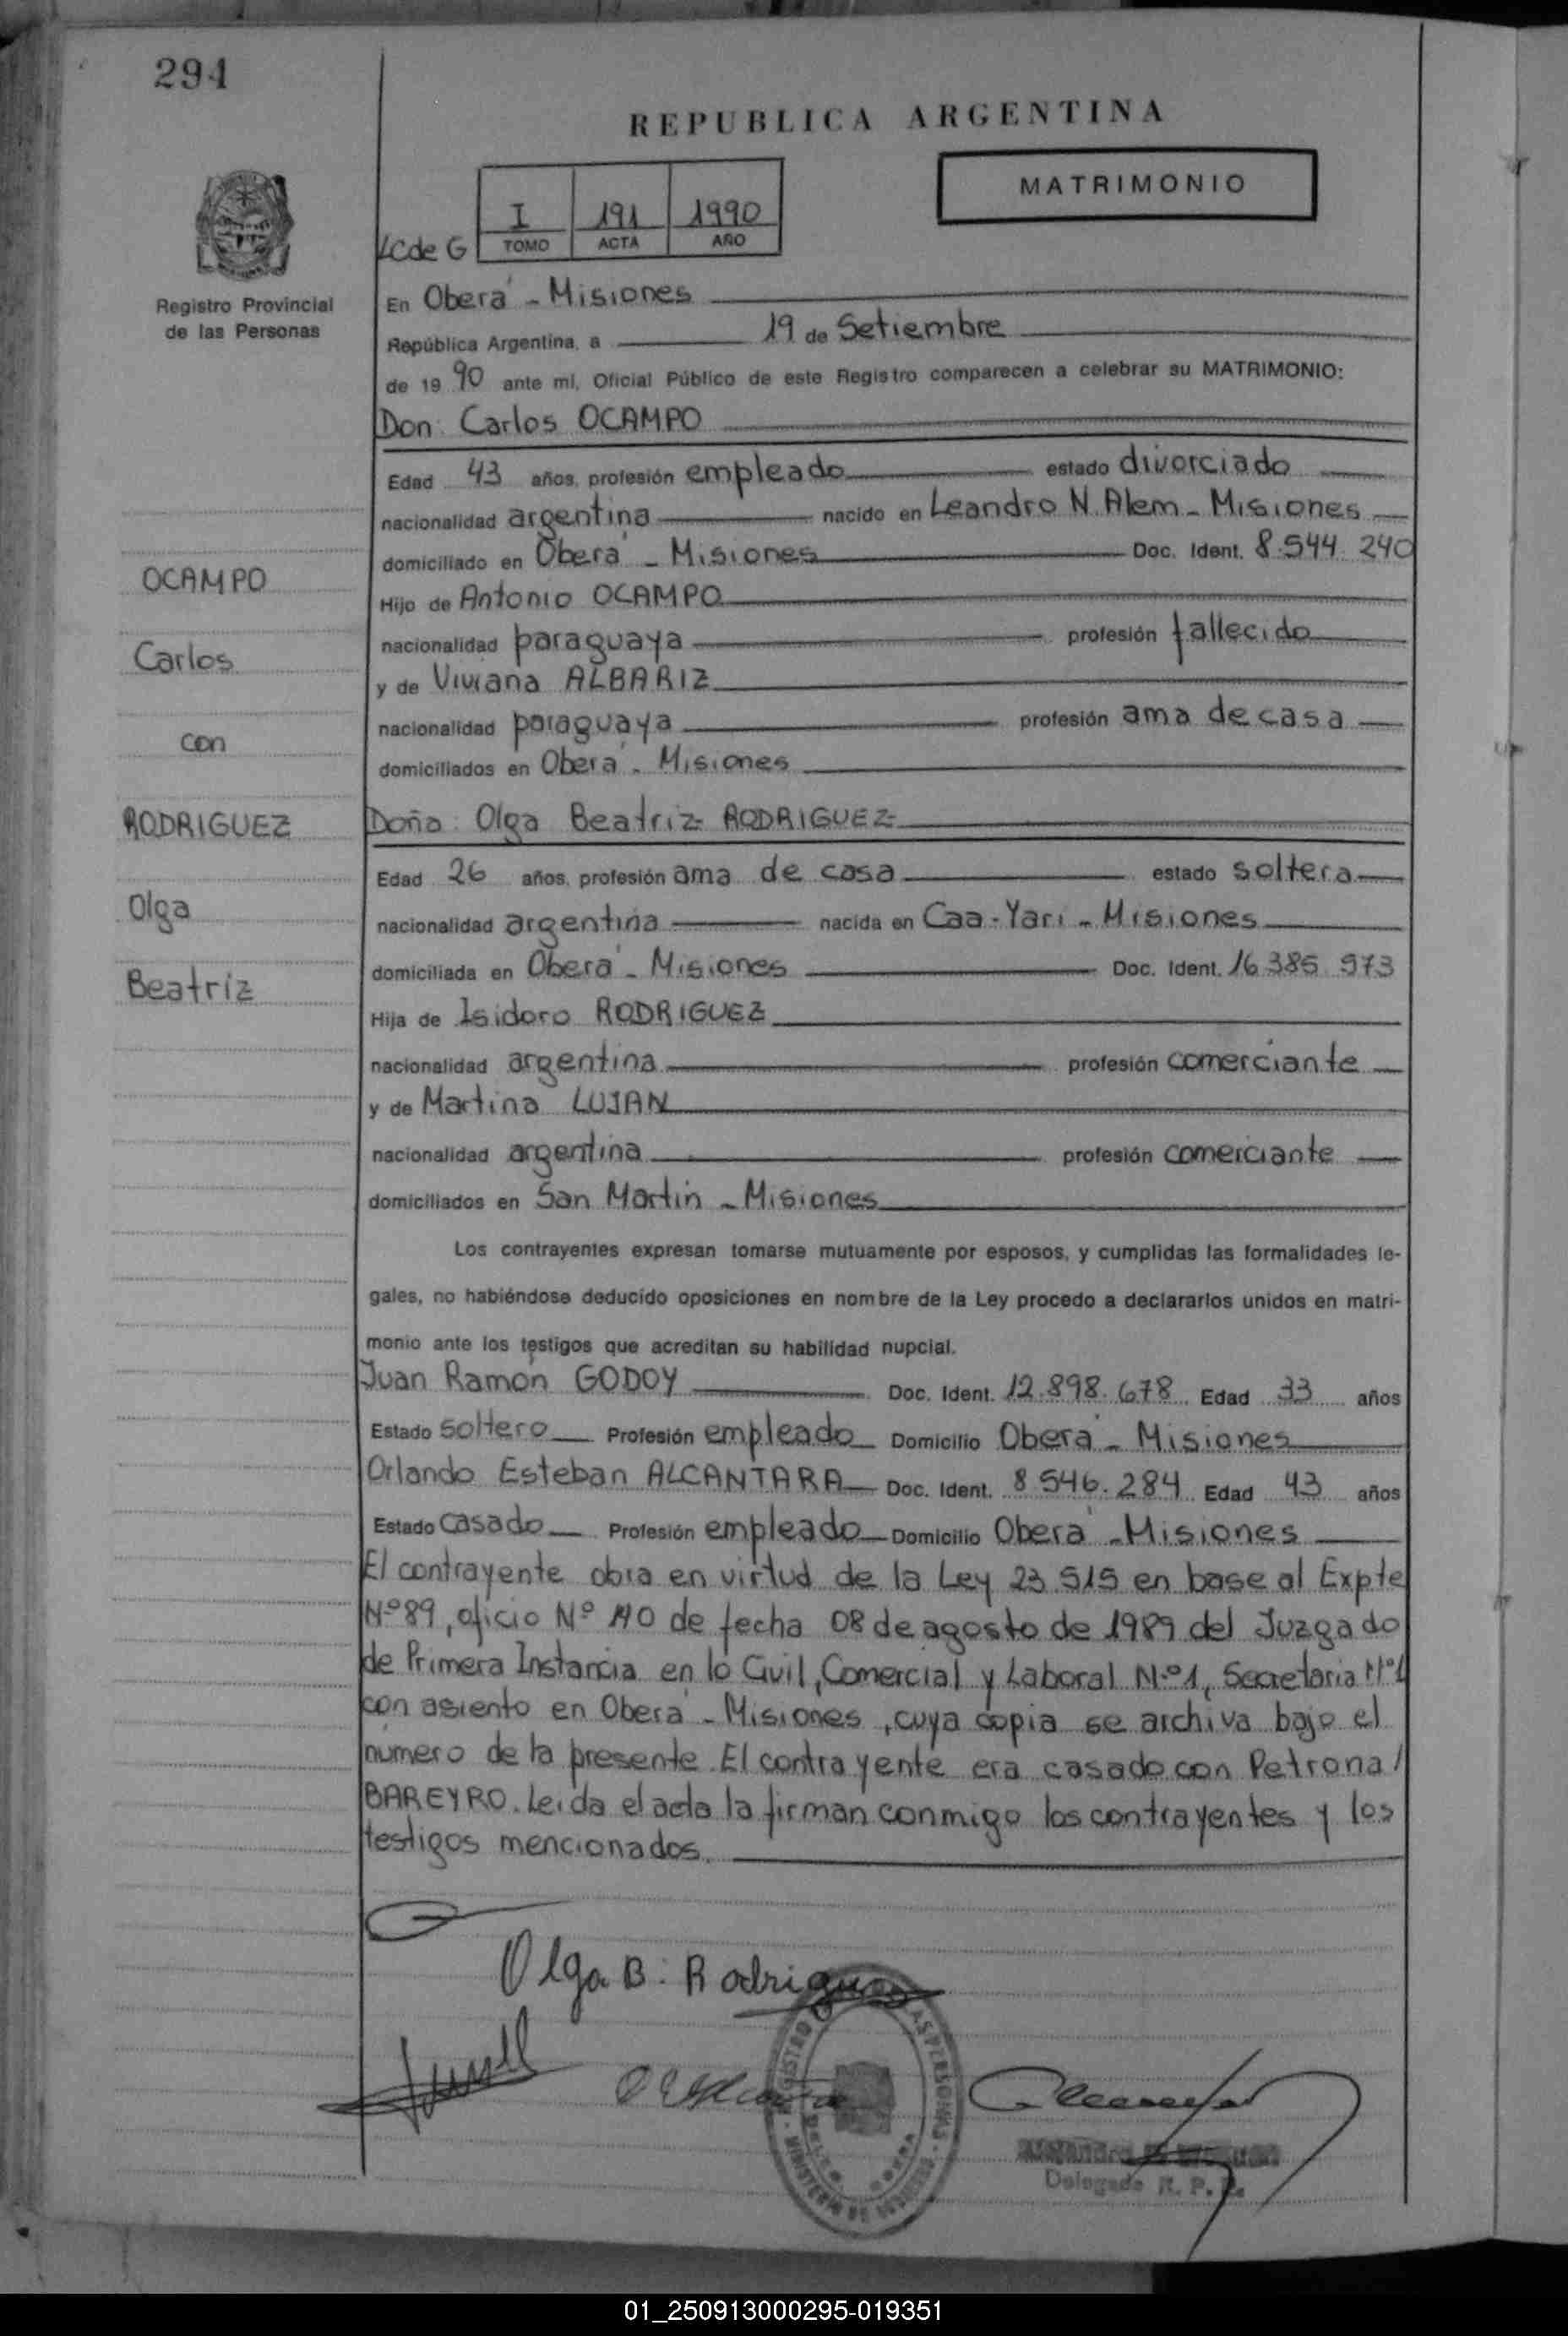 294
REPUBLICA ARGENTINA
MATRIMONIO
I 191 1990
LC de G TOMO ACTA AÑO
Registro Provincial
de las Personas
En Oberá - Misiones
República Argentina, a 19 de Setiembre
de 19 90 ante mí, Oficial Público de este Registro comparecen a celebrar su MATRIMONIO:
Don: Carlos OCAMPO
Edad 43 años, profesión empleado estado divorciado
nacionalidad argentina nacido en Leandro N. Alem - Misiones
domiciliado en Oberá - Misiones Doc. Ident. 8.544.240
OCAMPO
Hijo de Antonio OCAMPO
nacionalidad paraguaya profesión fallecido
Carlos
y de Viviana ALBARIZ
nacionalidad paraguaya profesión ama de casa
con
domiciliados en Oberá - Misiones
RODRIGUEZ
Doña: Olga Beatriz RODRIGUEZ
Edad 26 años, profesión ama de casa estado soltera
Olga
nacionalidad argentina nacida en Caa-Yari - Misiones
domiciliada en Oberá - Misiones Doc. Ident. 16.385.973
Beatriz
Hija de Isidoro RODRIGUEZ
nacionalidad argentina profesión comerciante
y de Martina LUJAN
nacionalidad argentina profesión comerciante
domiciliados en San Martín - Misiones
Los contrayentes expresan tomarse mutuamente por esposos, y cumplidas las formalidades le-
gales, no habiéndose deducido oposiciones en nombre de la Ley procedo a declararlos unidos en matri-
monio ante los testigos que acreditan su habilidad nupcial.
Juan Ramón GODOY Doc. Ident. 12.898.678 Edad 33 años
Estado soltero Profesión empleado Domicilio Oberá - Misiones
Orlando Esteban ALCANTARA Doc. Ident. 8.546.284 Edad 43 años
Estado casado Profesión empleado Domicilio Oberá - Misiones
El contrayente obra en virtud de la Ley 23.515 en base al Expte
Nº 89, oficio Nº 110 de fecha 08 de agosto de 1989 del Juzgado
de Primera Instancia en lo Civil, Comercial y Laboral N.º 1, Secretaria Nº 1
con asiento en Oberá - Misiones, cuya copia se archiva bajo el
número de la presente. El contrayente era casado con Petrona /
BAREYRO. Leida el acta la firman conmigo los contrayentes y los
testigos mencionados.
Olga B. Rodriguez
Delegado R. P. P.
01_250913000295-019351